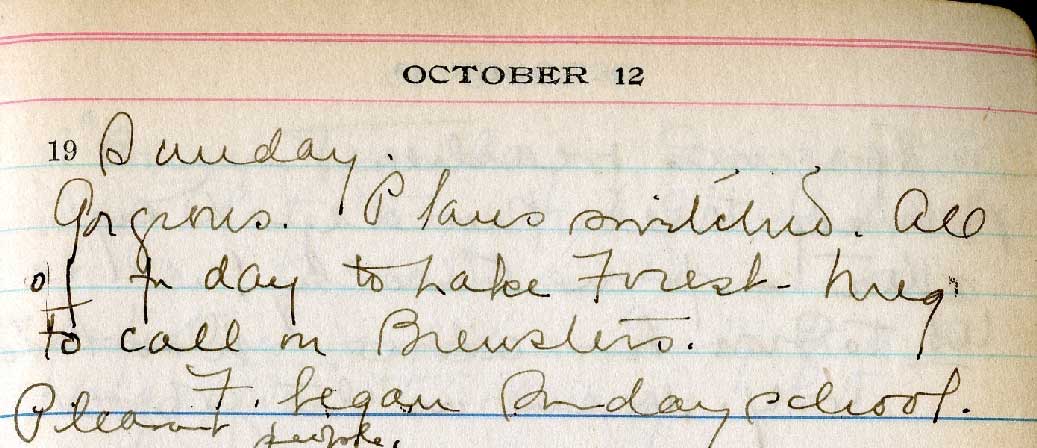 OCTOBER 12
19 Sunday.
Gorgeous. Plans switched. All
off for day to Lake Forest -
to call on Brewsters.
F. began Sunday school.
Pleasant people.